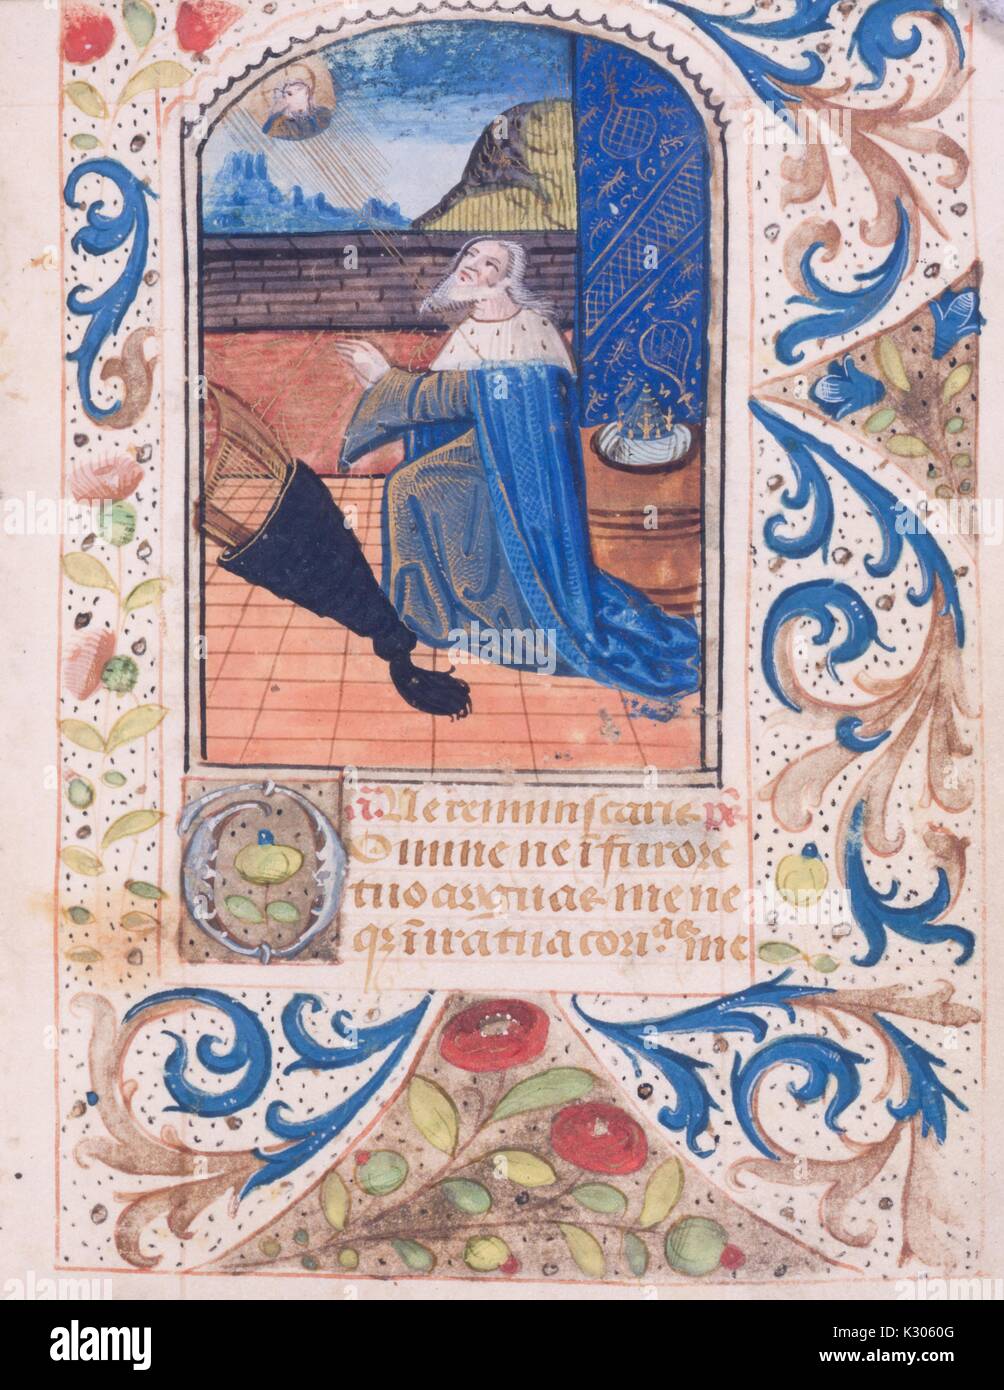 añ Ne reminiscaris p̄s
Omine ne ī furore
tuo arguas me ne
qȝ ī ira tua cori as me
alamy
Image ID: K3060G
www.alamy.com